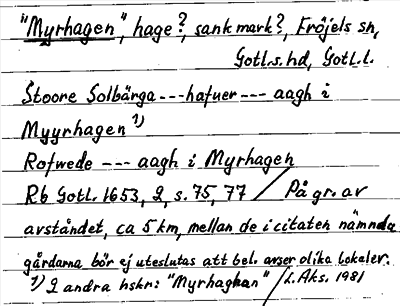 "Myrhagen", hage?, sank mark?, Fröjels sn,
Gotl.s.hd, Gotl.l.
Stoore Solbärga --- hafuer --- aagh i
Myyrhagen 1)
Rofwede --- aagh i Myrhagen
Rb Gotl. 1653, 2, s. 75, 77 / På gr. av
avståndet, ca 5 km, mellan de i citaten nämnda
gårdarna bör ej uteslutas att bel. avser olika lokaler.
1) I andra hskr: "Myrhaghan" / L. Aks. 1981